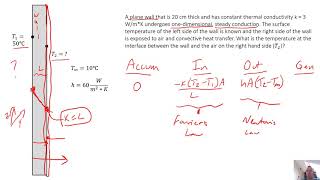 A plane wall that is 20 cm thick and has constant thermal conductivity k = 3
W/m*K undergoes one-dimensional, steady conduction. The surface
temperature of the left side of the wall is known and the right side of the wall
is exposed to air and convective heat transfer. What is the temperature at the
interface between the wall and the air on the right hand side (T₂)?
T₁ =
50°C
T₂ = ?
T∞ = 10°C
h = 60 W/m² * K
L
x = L
Accum In Out Gen
0 -k(T₂-T₁)A/L hA(T₂-T∞)
Fourier's Newton's
Law Law